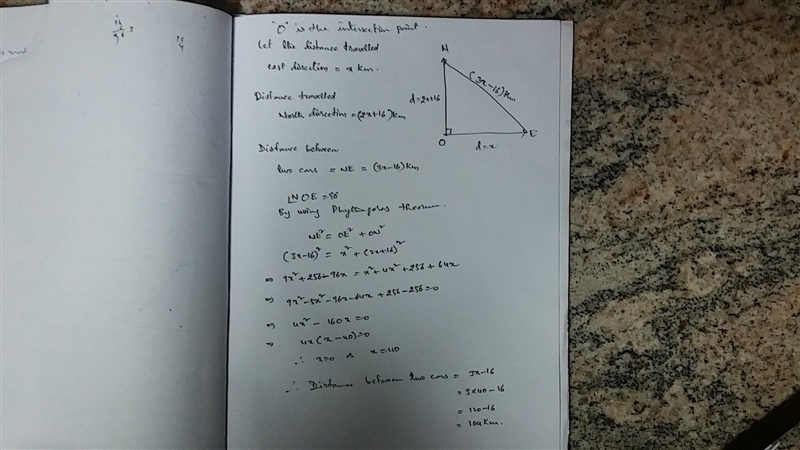 "O" is the intersection point.
Let the distance travelled
east direction = x Km.
Distance travelled
North direction = (2x+16) Km
Distance between
two cars = NE = (3x-16) Km
N
(3x-16) Km
d=2x+16
O
d=x
E
∠NOE = 90°
By using Phythagoras theorem.
NE² = OE² + ON²
(3x-16)² = x² + (2x+16)²
⇒ 9x²+256-96x = x²+4x²+256+64x
⇒ 9x²-5x²-96x-64x+256-256=0
⇒ 4x²-160x=0
⇒ 4x(x-40)=0
∴ x=0 or x=40
∴ Distance between two cars = 3x-16
= 3x40-16
= 120-16
= 104 Km.